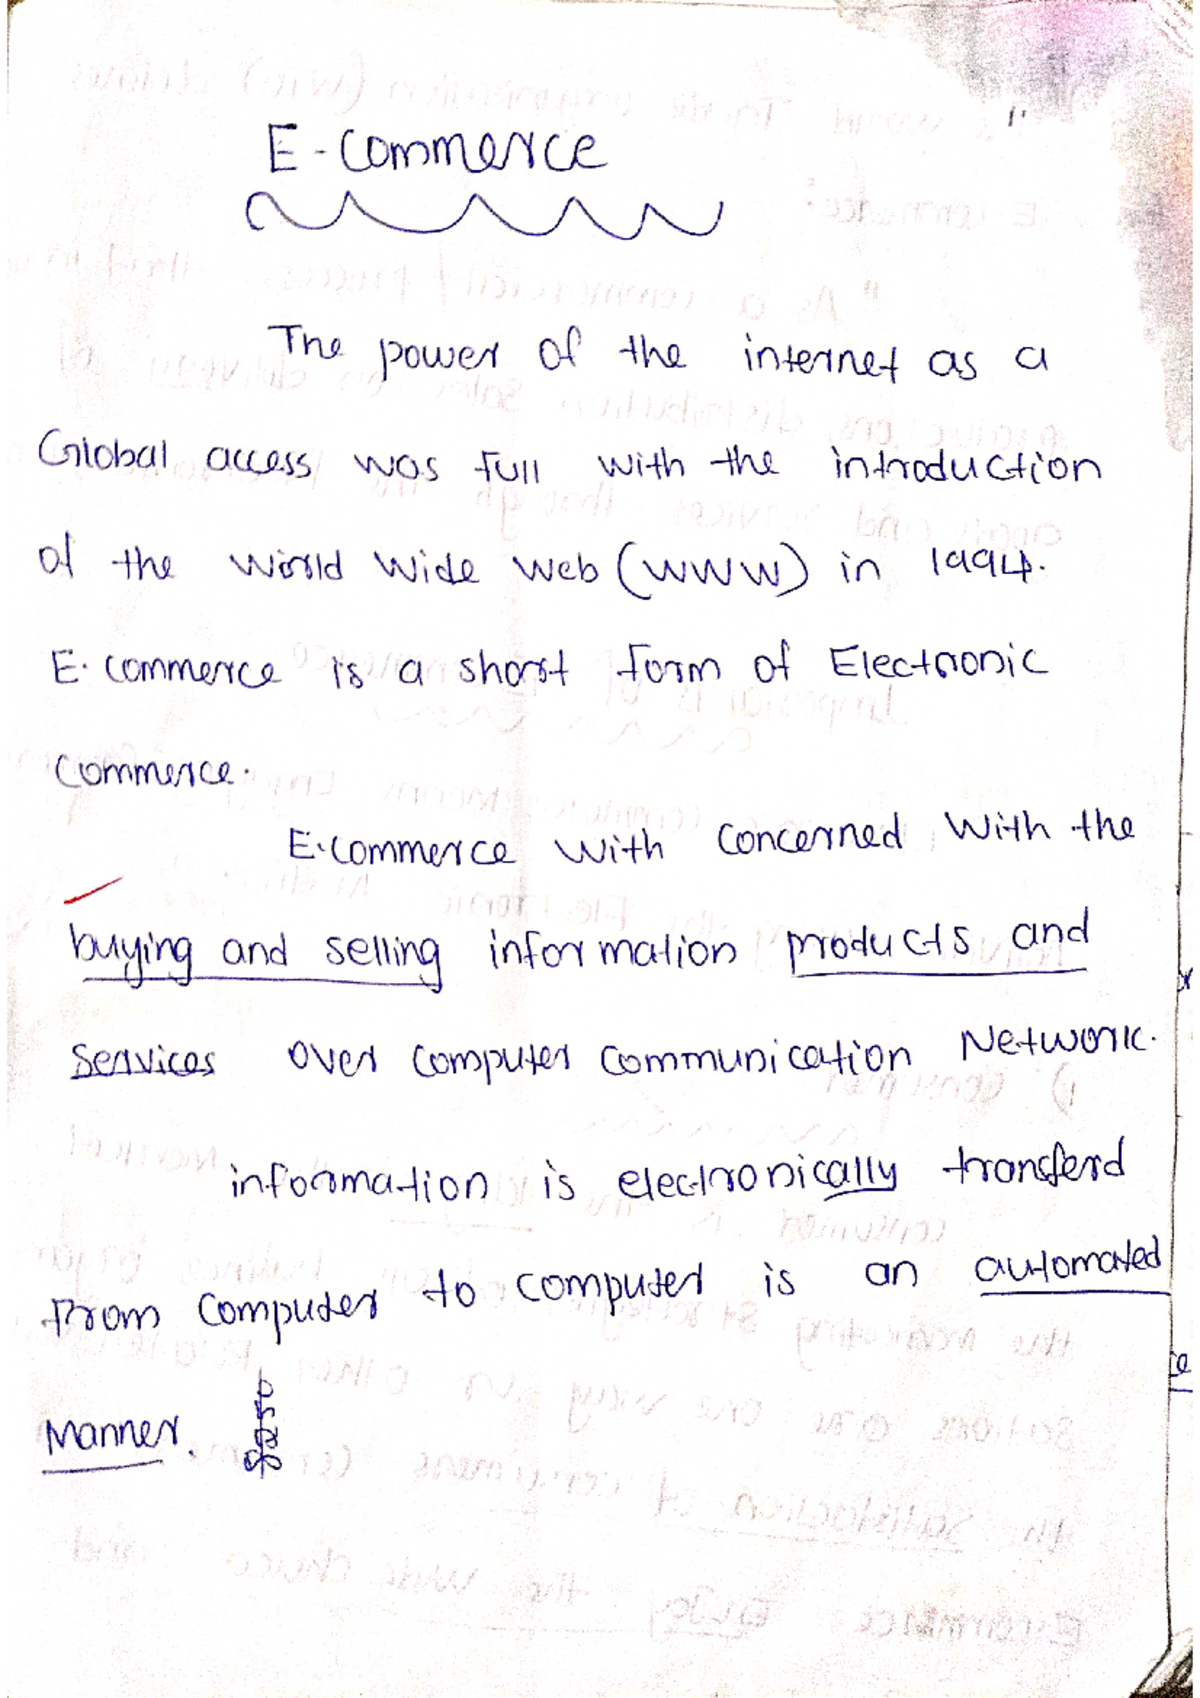 E-commerce
The power of the internet as a
Global access was full with the introduction
of the World Wide Web (WWW) in 1994.
E.commerce is a short form of Electronic
Commerce.
E.commerce with concerned with the
buying and selling information products and
services over computer communication Network.
information is electronically transferd
From computer to computer is an automated
Manner.